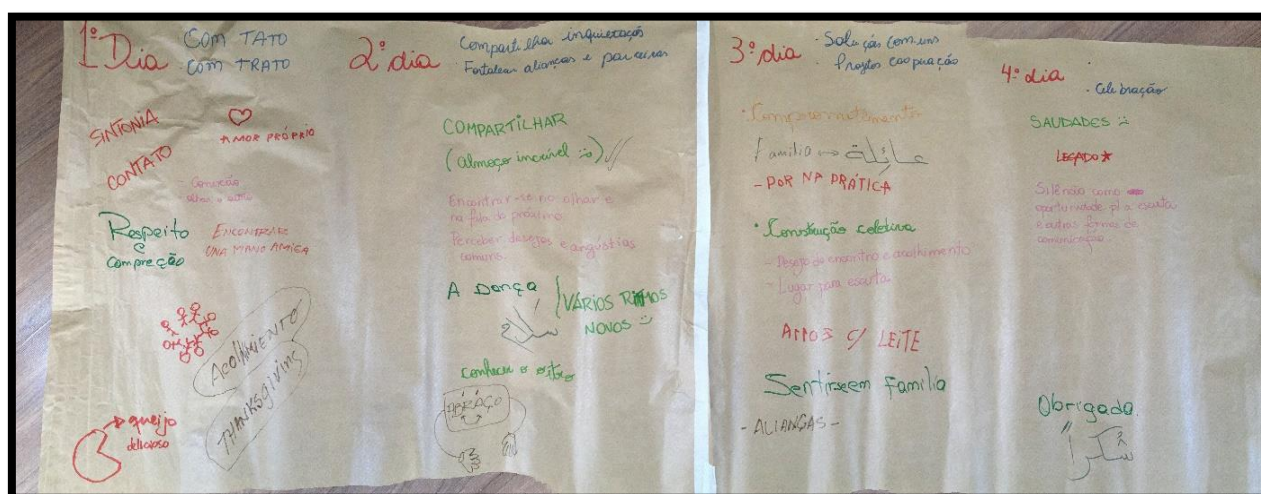 1º Dia
COM TATO
COM TRATO
SINTONIA
AMOR PRÓPRIO
CONTATO
Respeito
e
compreção
ENCONTRAR
UNA MANO AMIGA
ACOLHIMIENTO
THANKSGIVING
queijo
delicioso
2º dia
Compartilhar inquietações
Fortalecer alianças e parcerias
COMPARTILHAR
(almoço incrível :))
Encontrar-se no olhar e
na fala do próximo
Perceber desejos e angústias
comuns.
A Dança
VÁRIOS RITMOS
NOVOS
conhecer o outro
ABRAÇO
3º dia
- Soluções comuns
- Projetos cooperação
• Comprometimento
Familia → عائلة
- POR NA PRÁTICA
• Construção coletiva
- Desejo do encontro e acolhimento
- Lugar para escuta
ARROZ C/ LEITE
Sentirse em Familia
- ALIANÇAS -
4º dia
- Celebração
SAUDADES
LEGADO
Silêncio como
oportunidade p/ a escuta
e outras formas de
comunicação.
Obrigada
شكراً